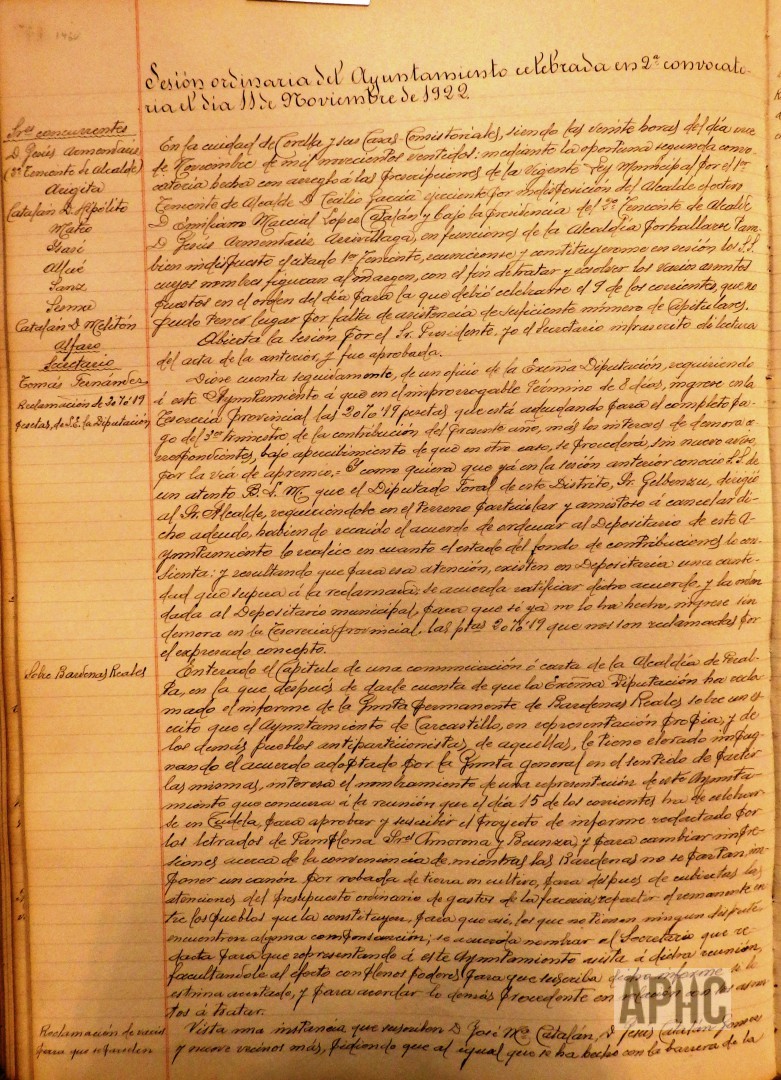 Sesión ordinaria del Ayuntamiento celebrada en 2ª convocato-
ria el día 11 de Noviembre de 1922.
Sres concurrentes
D. Jesús Armendariz
(3er Teniente de Alcalde)
Argita
Catalán D. Hipólito
Mateo
Igasi
Allué
Sanz
Sesma
Catalán D. Melitón
Alfaro
Secretario
Tomás Fernández
En la ciudad de Corella y sus Casas-Consistoriales, siendo las veinte horas del día once
de Noviembre de mil novecientos veintidos: mediante la oportuna segunda convo-
catoria hecha con arreglo á las prescripciones de la vigente Ley Municipal por el 1er
Teniente de Alcalde D. Cecilio García ejerciente por indisposición del Alcalde efectivo
D. Emiliano Marcial López Catalán y bajo la Presidencia del 3er Teniente de Alcalde
D. Jesús Armendariz Arrivillaga, en funciones de la Alcaldía por hallarse tam-
bien indispuesto el citado 1er Teniente, reuniéronse y constituyeronse en sesión los S.S.
cuyos nombres figuran al margen, con el fin de tratar y resolver los varios asuntos
puestos en el orden del día para la que debió celebrarse el 9 de los corrientes, que no
pudo tener lugar por falta de asistencia de suficiente número de Capitulares.
Abierta la sesión por el Sr. Presidente, yo el Secretario infrascrito dí lectura
del acta de la anterior, y fue aprobada.
Reclamación de 2070'19
pesetas, de S.E. la Diputación
Diose cuenta seguidamente, de un oficio de la Excma Diputación, requiriendo
á este Ayuntamiento á que en el improrrogable término de 8 dias, ingrese en la
Tesorería Provincial las 2070'19 pesetas que está adeudando para el completo pa-
go del 3er trimestre, de la contribución del presente año, más los intereses de demora co-
rrespondientes, bajo apercibimiento de que en otro caso, se procederá, sin nuevo aviso,
por la vía de apremio.= Y como quiera que yá en la sesión anterior conoció S.S. de
un atento B.L.M. que el Diputado Foral de este Distrito, Sr. Gelbenzu, dirigió
al Sr. Alcalde, requiriéndole en el terreno particular y amistoso á cancelar di-
cho adeudo, habiendo recaido el acuerdo de ordenar al Depositario de este A-
yuntamiento lo realice en cuanto el estado del fondo de contribuciones lo con-
sienta: y resultando que para esa atención, existen en Depositaría una canti-
dad que supera á la reclamada; se acuerda ratificar dicho acuerdo, y la orden
dada al Depositario municipal, para que si ya no lo ha hecho, ingrese sin
demora en la Tesorería provincial, las ptas 2070'19 que nos son reclamadas por
el expresado concepto.
Sobre Bardenas Reales
Enterado el Capítulo de una comunicación ó carta de la Alcaldía de Peral-
ta, en la que después de darle cuenta de que la Excma Diputación ha recla-
mado el informe de la Junta permanente de Bardenas Reales sobre un es-
crito que el Ayuntamiento de Carcastillo, en representación propia, y de
los demás pueblos antiparticionistas, de aquellas, le tiene elevado impug-
nando el acuerdo adoptado por la Junta general en el sentido de partir
las mismas, interesa el nombramiento de una representación de este Ayunta-
miento que concurra á la reunión que el día 15 de los corrientes ha de celebrar-
se en Tudela, para aprobar y suscribir el Proyecto de informe redactado por
los letrados de Pamplona Sres Amorena y Beunza, y para cambiar impre-
siones acerca de la conveniencia de, mientras las Bardenas no se partan, im-
poner un canón por robada de tierra en cultivo, para después de cubiertas las
atenciones del presupuesto ordinario de gastos de la facería, repartir el remanente en-
tre los pueblos que la constituyen, para que así, los que no tienen ningun disfrute
encuentren alguna compensación; se acuerda nombrar al Secretario que re-
dacta para que representando á este Ayuntamiento asista á dicha reunión,
facultandole al efecto con plenos poderes para que suscriba dicho informe si lo
estima acertado, y para acordar lo demás procedente en asun-
tos á tratar.
Reclamación de vecinos
para que se
Vista una instancia que suscriben D. José Mª Catalán, D. Jesús Catalán
y nueve vecinos más, pidiendo que al igual que se ha hecho con la barrera de la
APHC